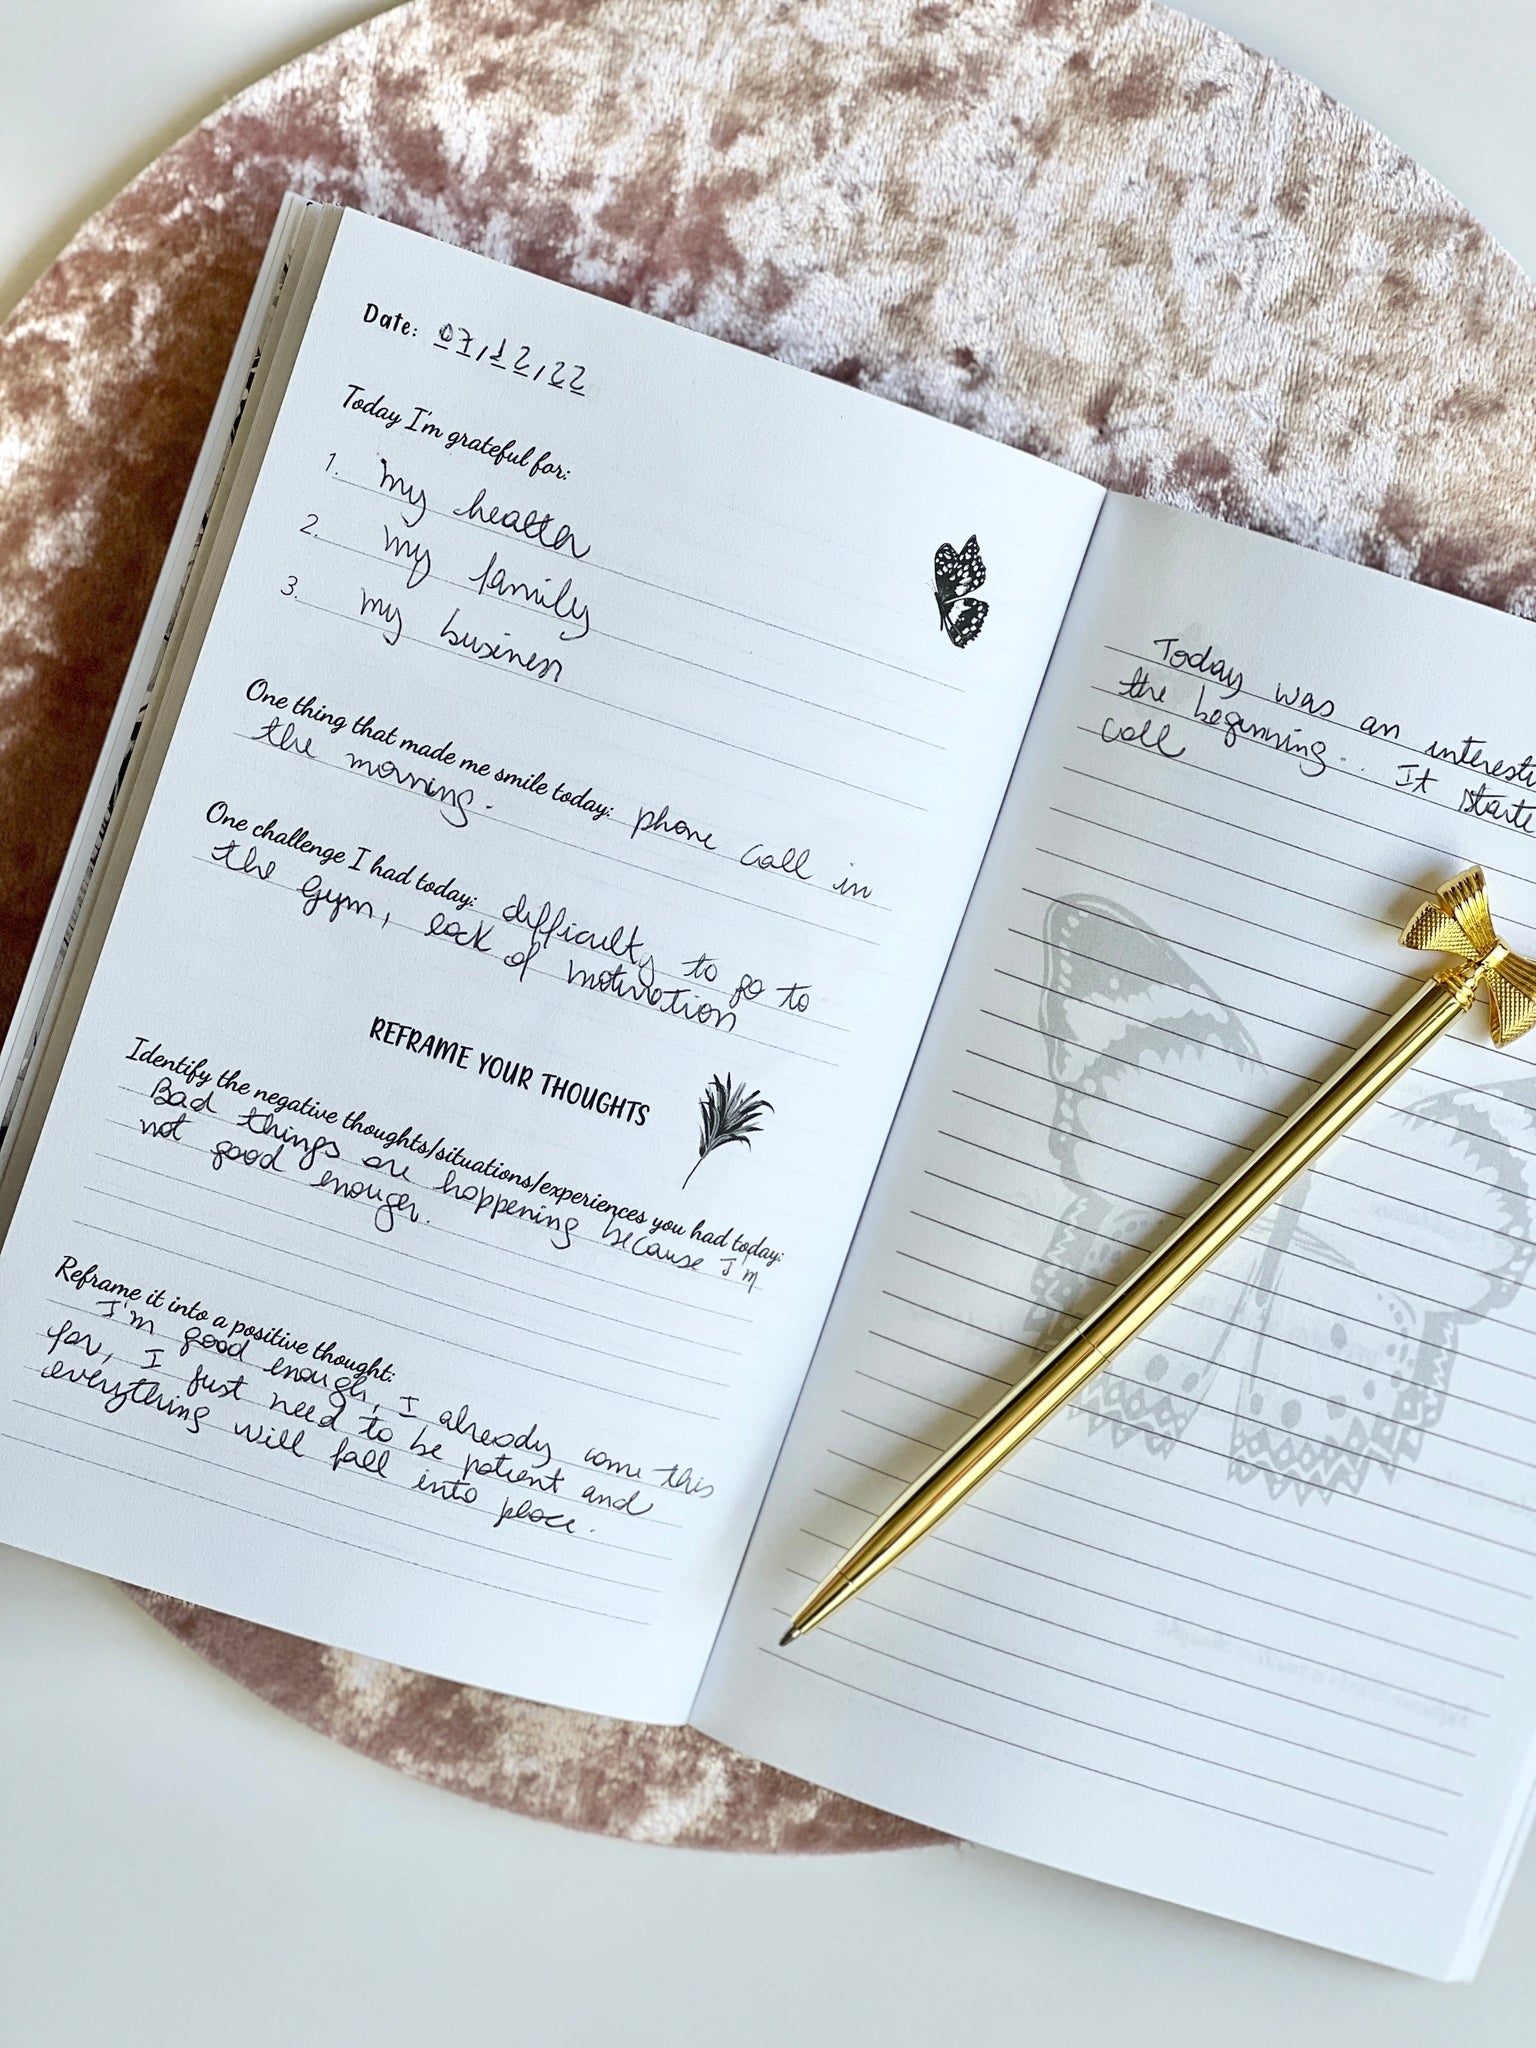 Date: 07,12,22
Today I'm grateful for:
1. my health
2. my family
3. my business
One thing that made me smile today: phone call in
the morning.
One challenge I had today: difficulty to go to
the gym, lack of motivation
REFRAME YOUR THOUGHTS
Identify the negative thoughts/situations/experiences you had today:
Bad things are happening because I'm
not good enough.
Reframe it into a positive thought:
I'm good enough, I already come this
far, I just need to be patient and
everything will fall into place.
Today was an interesti
the beginning... It starte
call